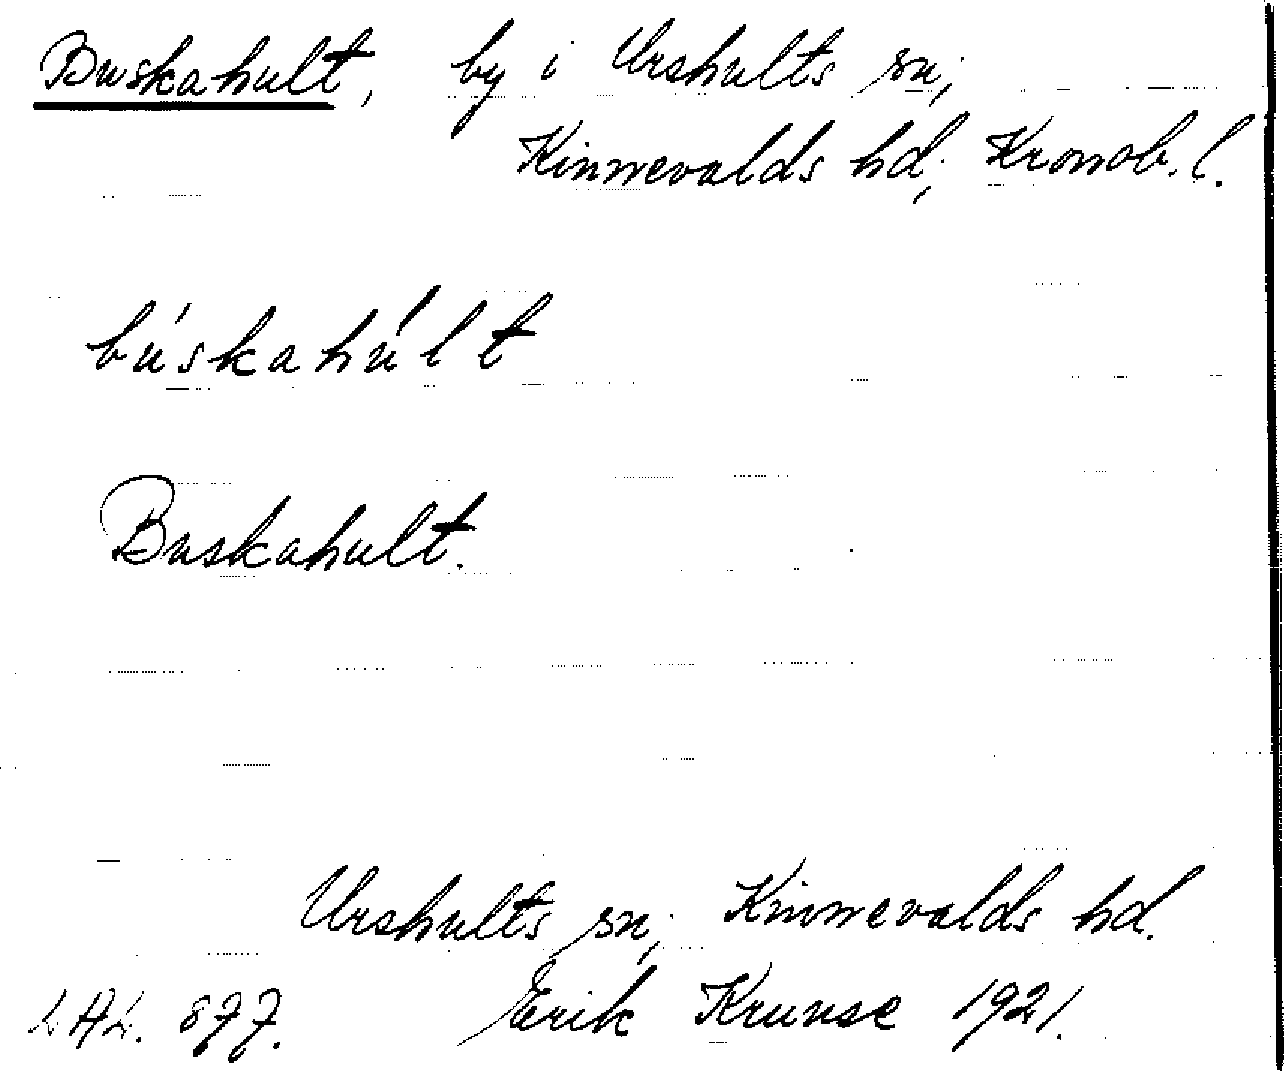 Buskahult, by i Urshults sn,
Kinnevalds hd, Kronob. l.
búskahúlt
Buskahult.
Urshults sn, Kinnevalds hd.
LAL. 877. Erik Kruuse 1921.